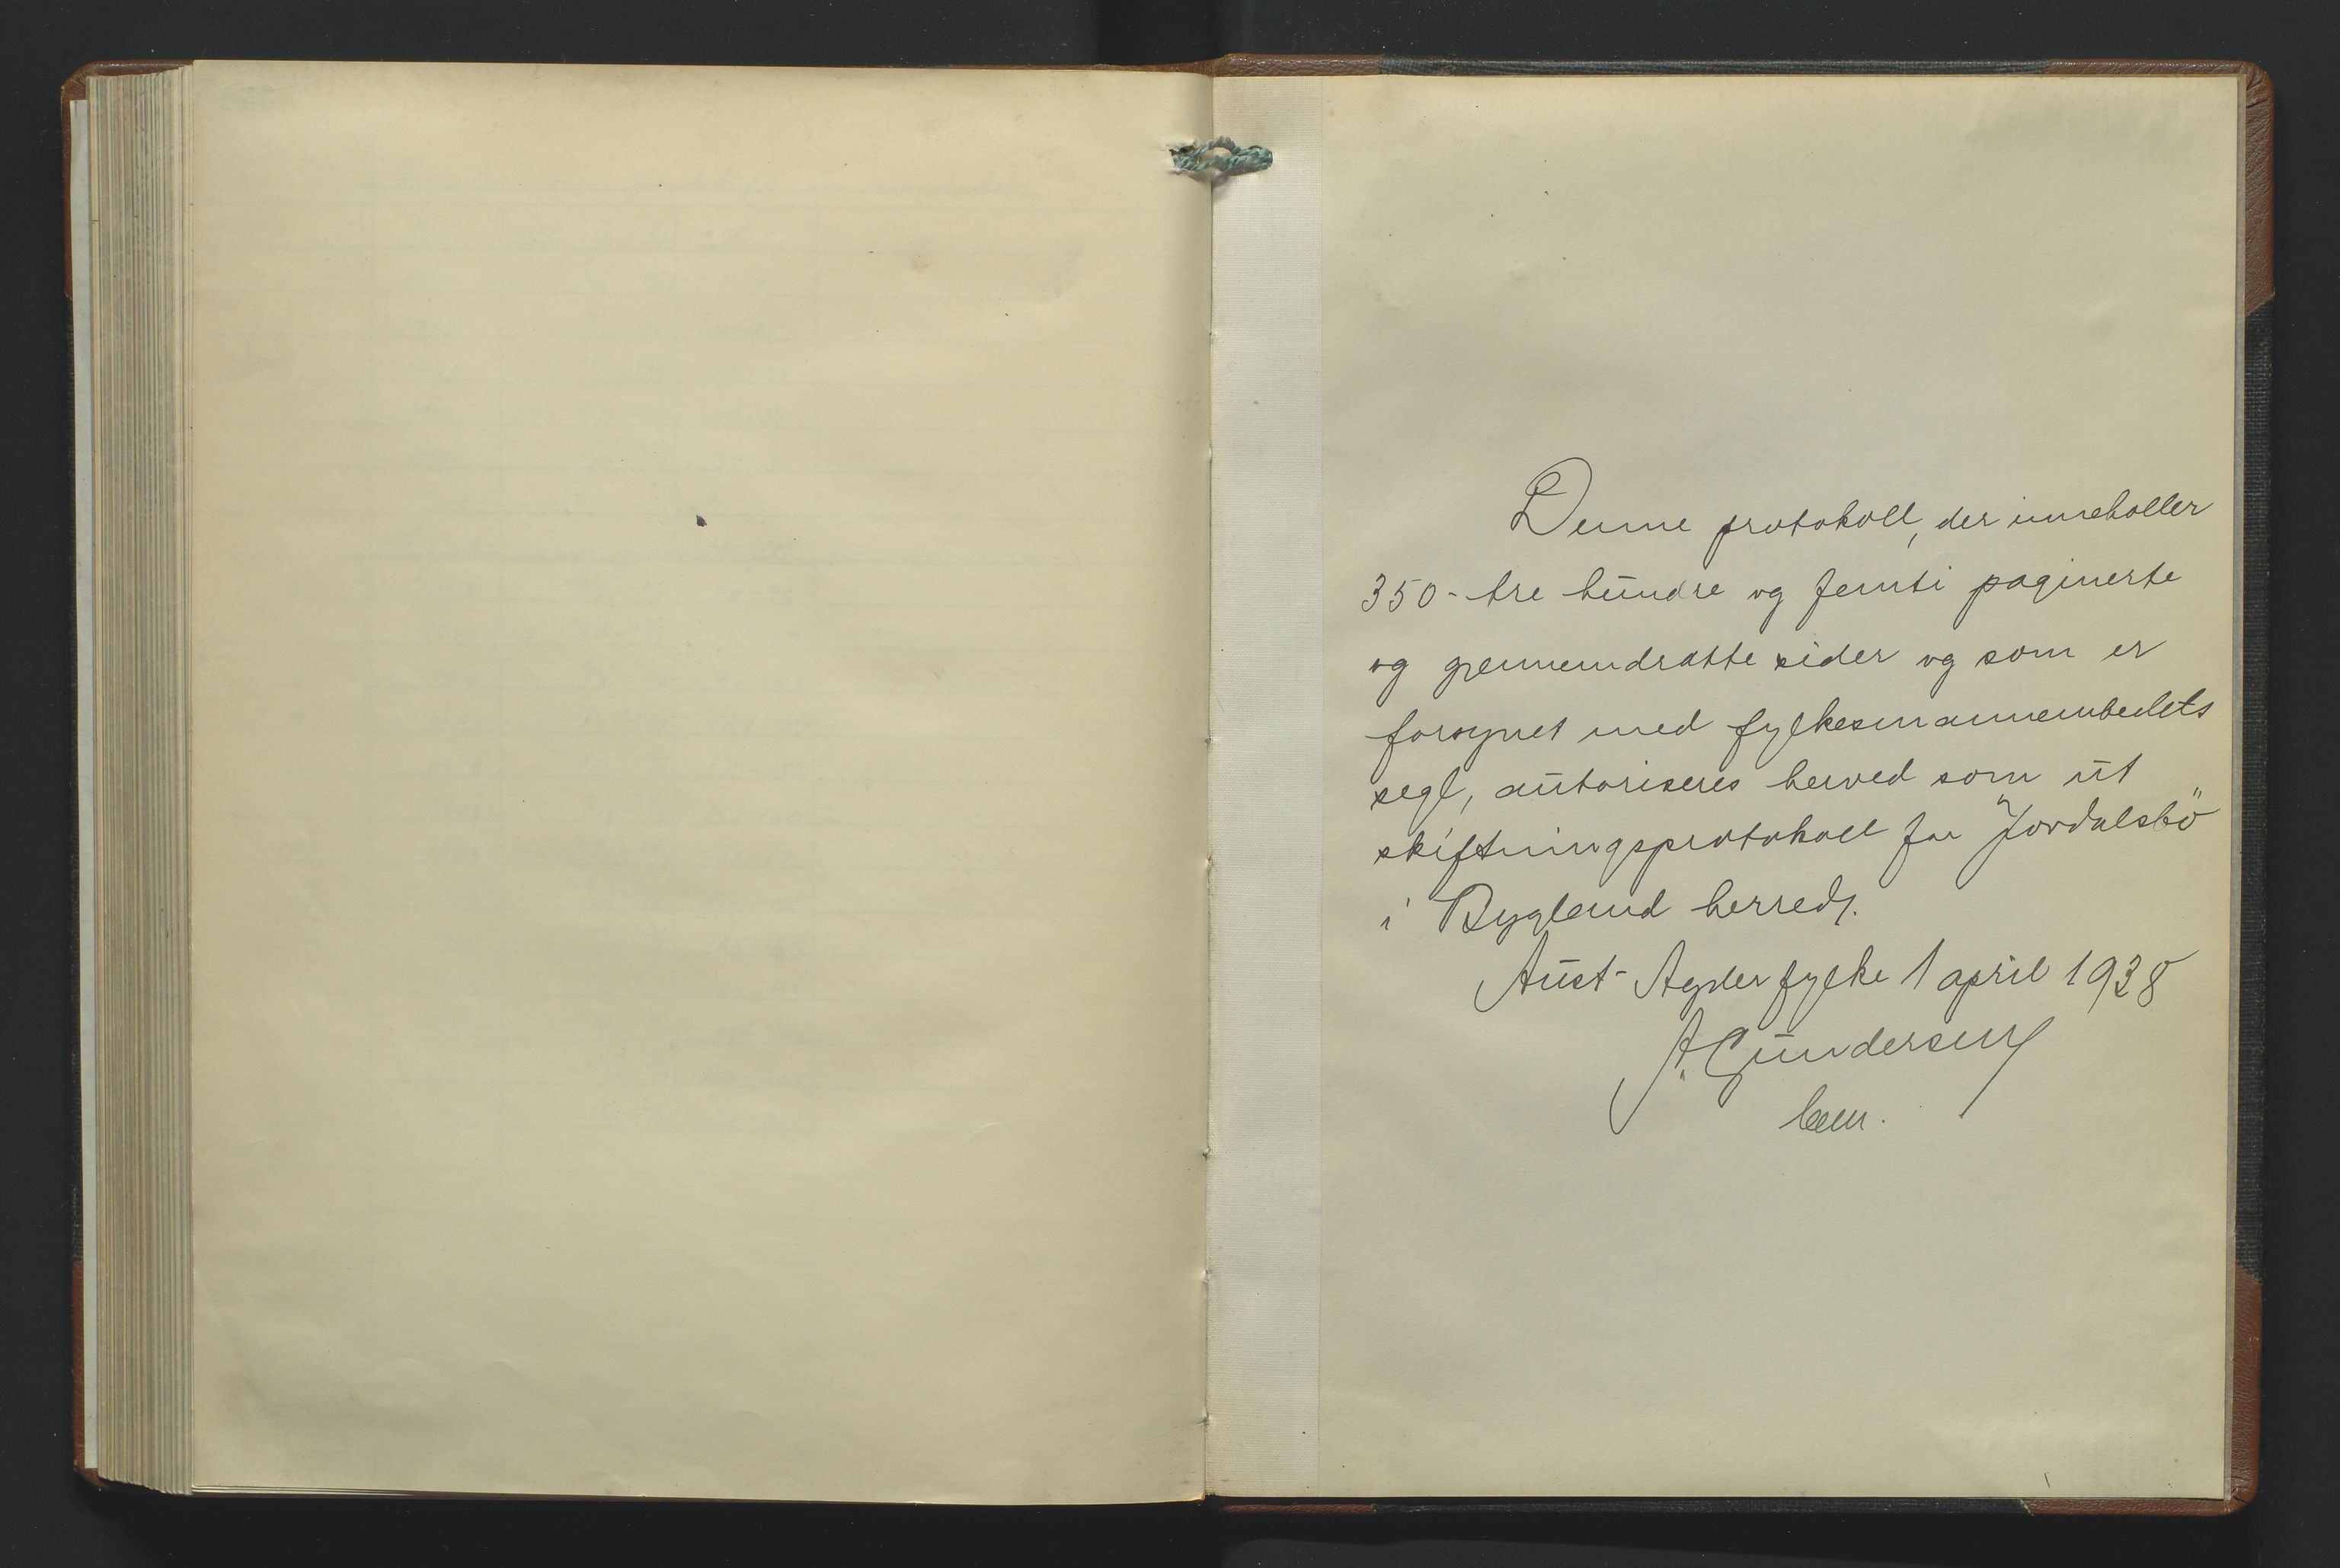 Denne protokoll, der inneholler
350 - tre hundre og femti paginerte
og gjennemdratte sider og som er
forsynet med fylkesmannembedets
segl, autoriseres herved som ut
skiftningsprotokoll for Jordalsbö
i Bygland herred.
Aust-Agder fylke 1 april 1938
A. Gundersen